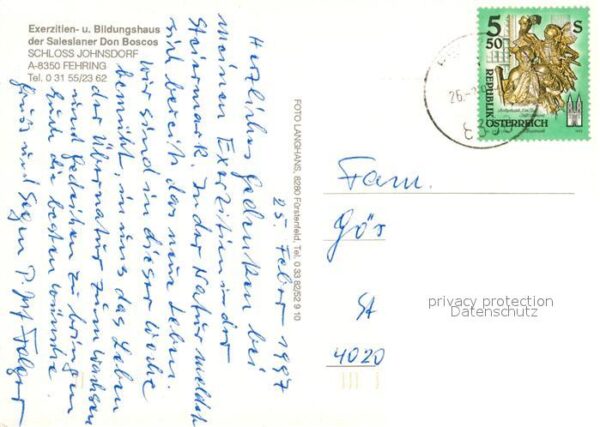 Exerzitien- u. Bildungshaus
der Salesianer Don Boscos
SCHLOSS JOHNSDORF
A-8350 FEHRING
Tel. 0 31 55/23 62
25. Feber 1997
Herzliches Gedenken bei
meinen Exerzitien in der
Steiermark. In der Natur meldet
sich bereits das neue Leben.
Wir sind in dieser Woche
bemüht, in uns das Leben
der Übernatur zum Wachsen
und Gedeihen zu bringen.
Euch die besten Wünsche
Gruß und Segen P.
FOTO LANGHANS, 8280 Fürstenfeld, Tel. 0 33 82/52 9 10
5 50 S
REPUBLIK
ÖSTERREICH
26.
Fam.
Gör
St
4020
privacy protection
Datenschutz